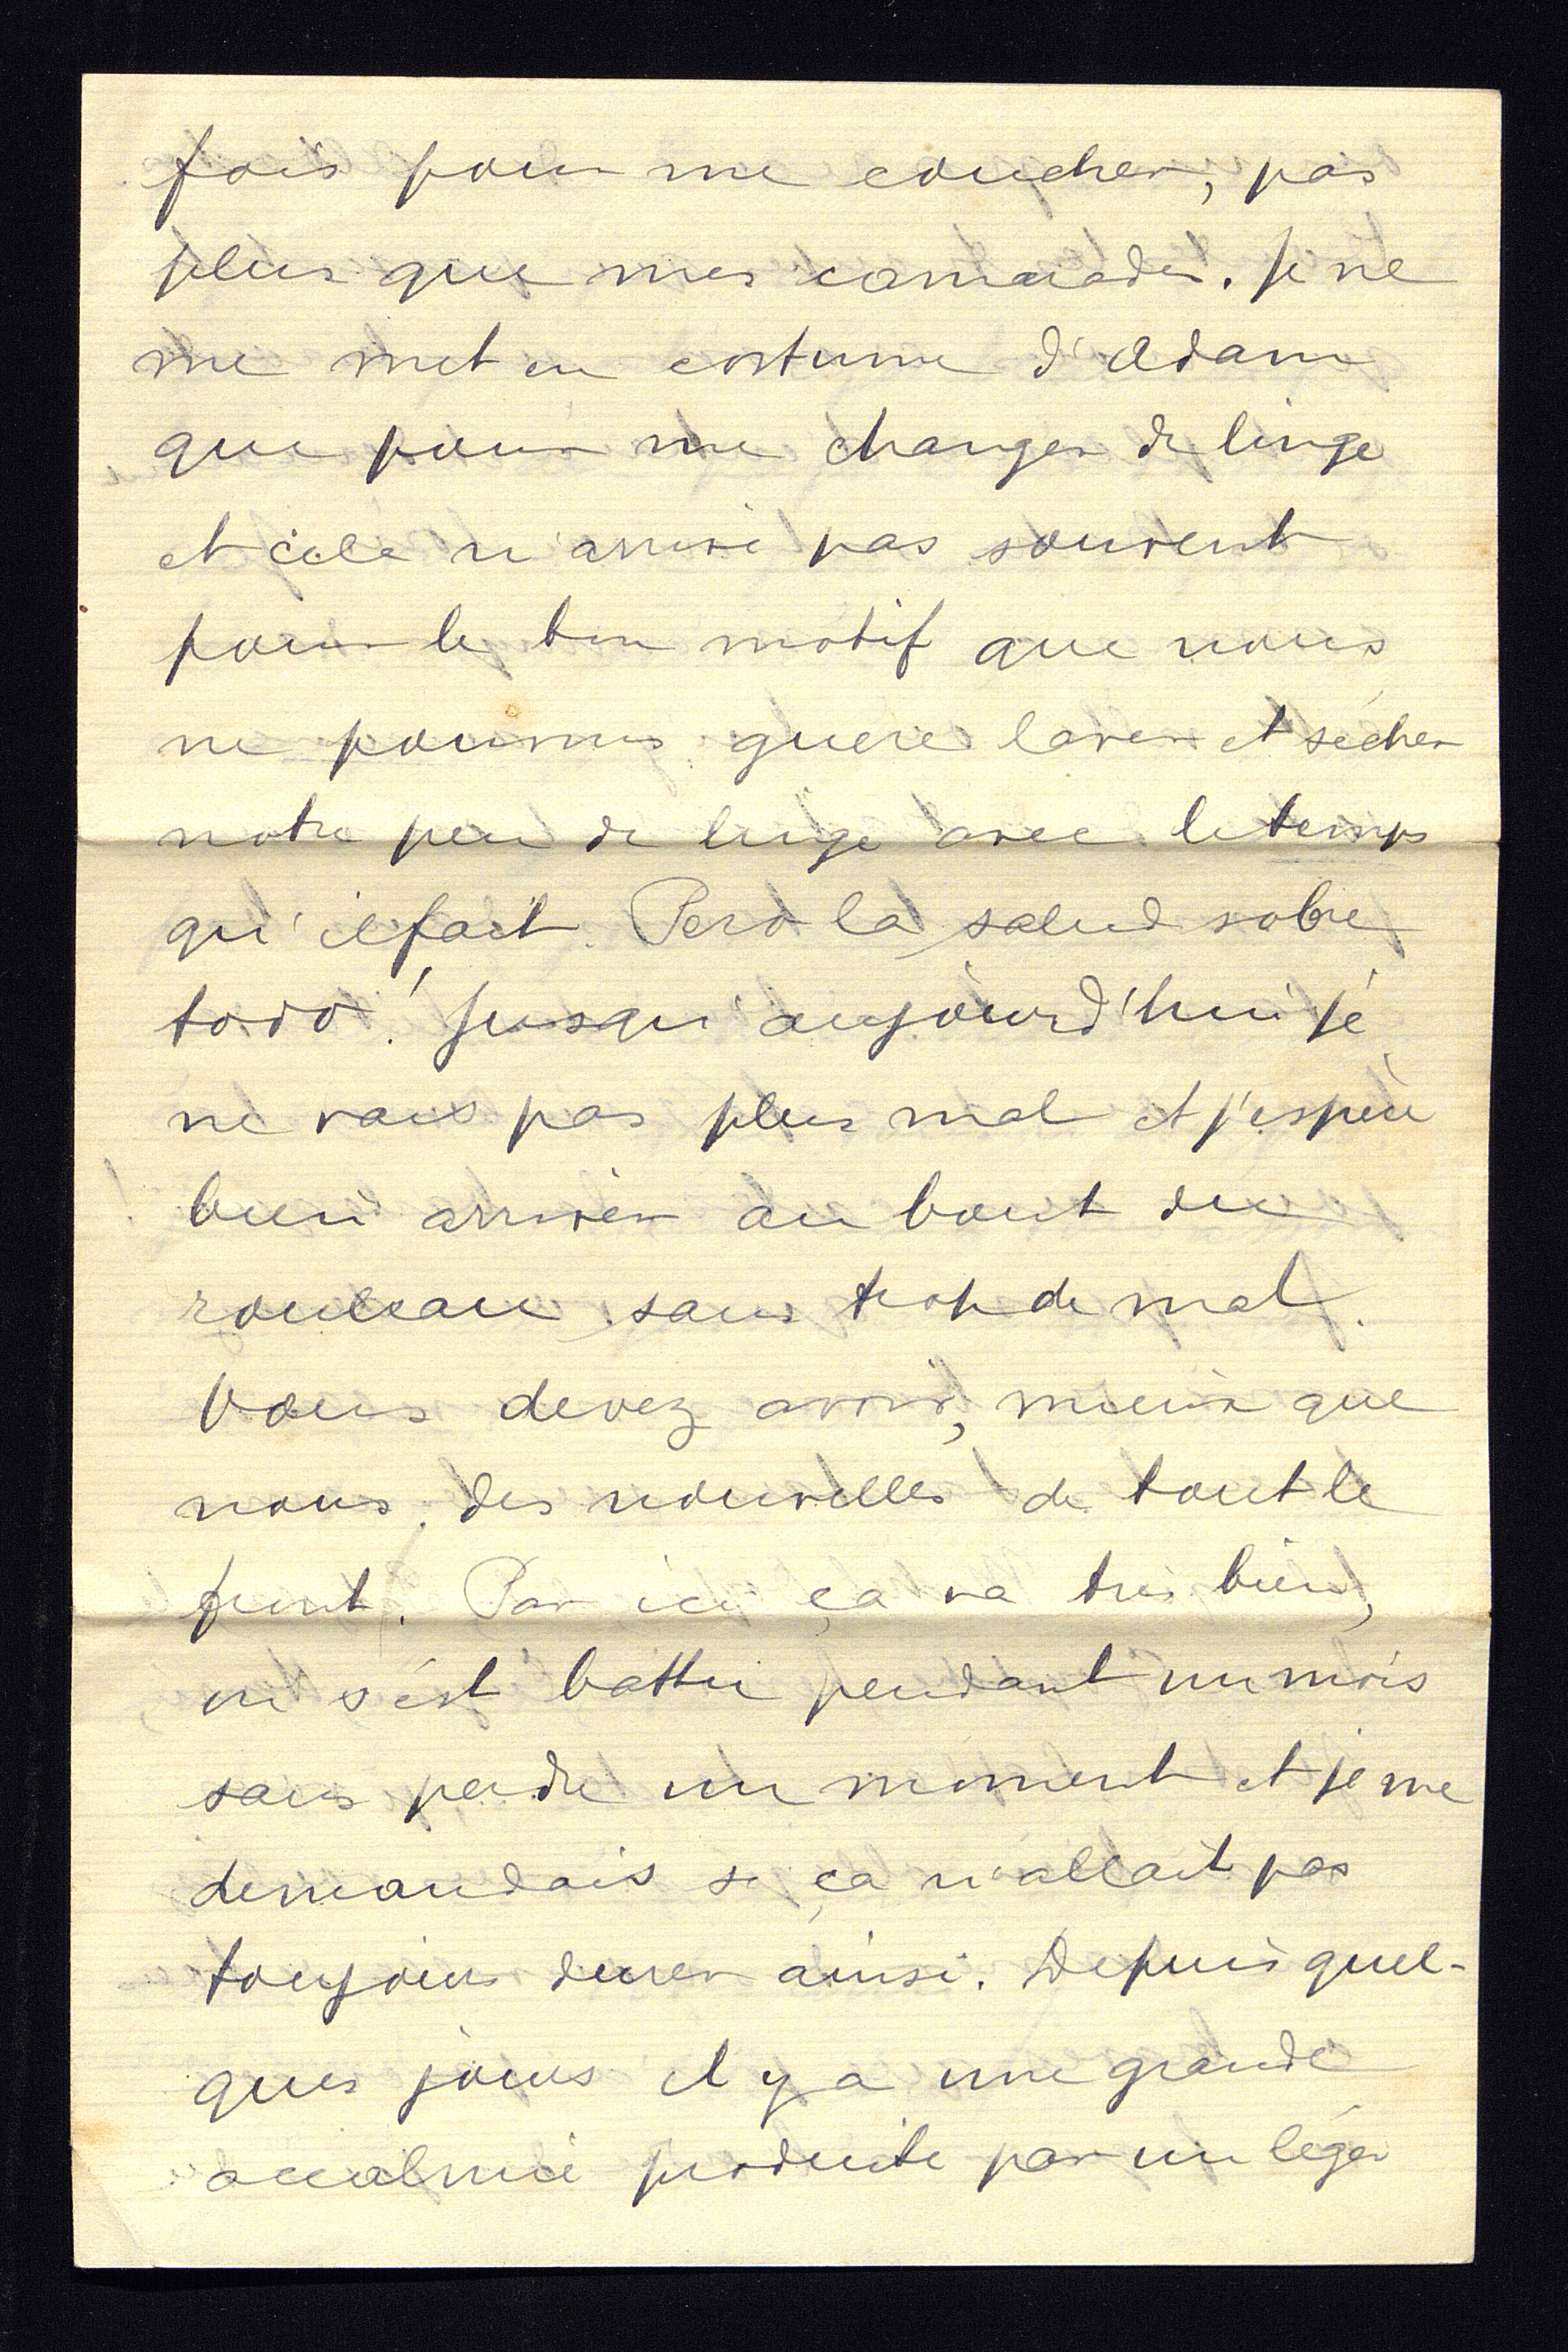 fois pour me coucher, pas
plus que mes camarades. Je ne
me met en costume d'Adam
que pour me changer de linge
et cela n'arrive pas souvent
pour le bon motif que nous
ne pouvons guère laver et sécher
notre peu de linge avec le temps
qu'il fait. Pero la salud sobre
todo! Jusqu'aujourd'hui je
ne vais pas plus mal et j'espère
bien arriver au bout du
rouleau sans trop de mal.
Vous devez avoir, mieux que
nous, des nouvelles de tout le
front. Par ici ça va très bien,
on s'est battu pendant un mois
sans perdre un moment et je me
demandais si ça n'allait pas
toujours durer ainsi. Depuis quel-
ques jours il y a une grande
accalmie produite par un léger